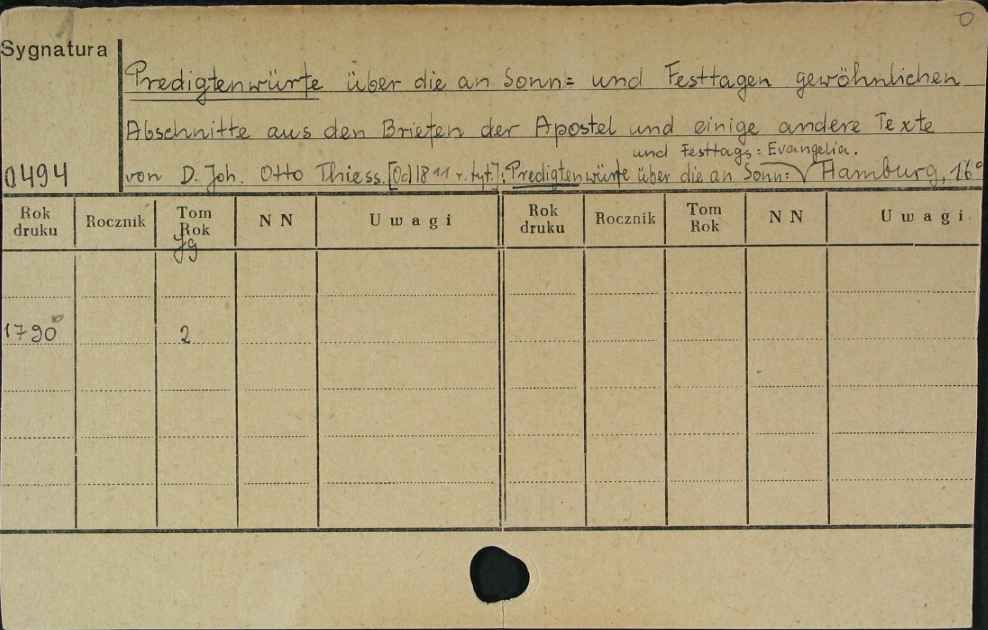 1
0
Sygnatura
Predigtenwürfe über die an Sonn= und Festtagen gewöhnlichen
Abschnitte aus den Briefen der Apostel und einige andere Texte
und Festtags=Evangelia.
0494 von D. Joh. Otto Thiess. [Od 1811 r. tyt.: Predigtenwürfe über die an Sonn= √ Hamburg, 16°
Rok druku Rocznik Tom Rok NN Uwagi Rok druku Rocznik Tom Rok NN Uwagi
Jg
1790 2